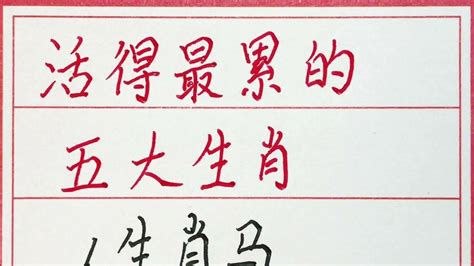 活得最累的
五大生肖
1生肖马